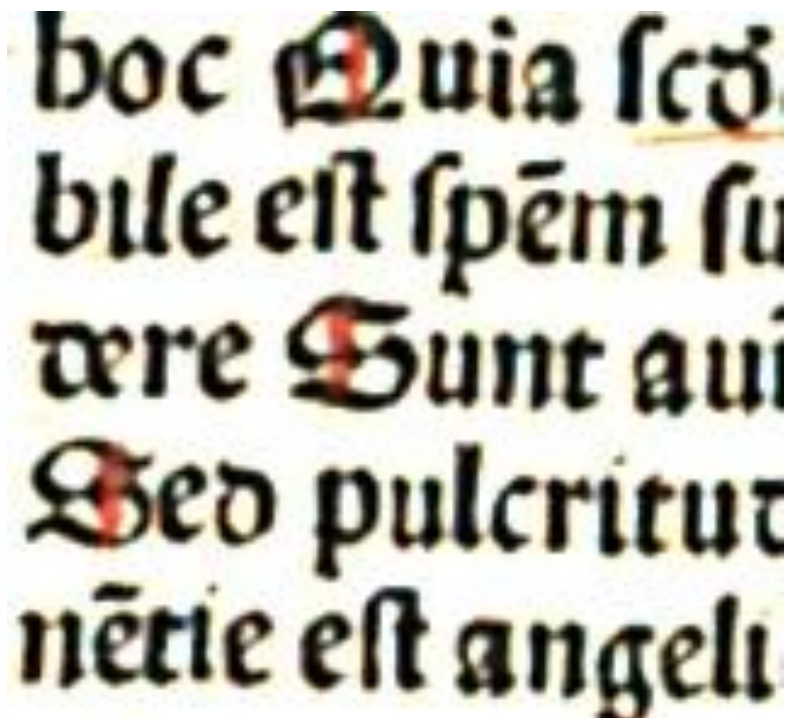 hoc Quia ſcd
bile eſt ſpēm ſu
dere Sunt aui
Sed pulcritud
nētie eſt angeli